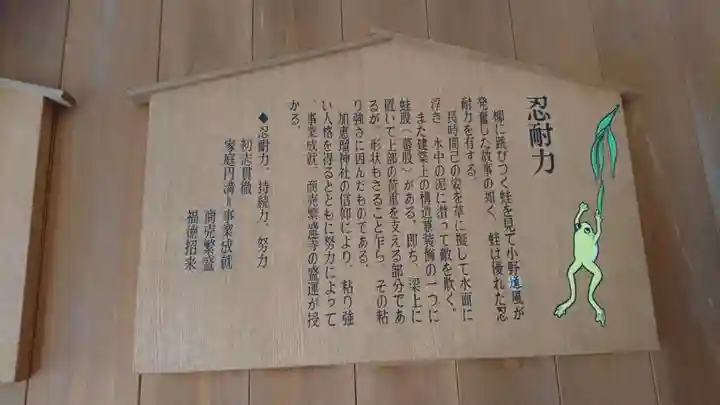 忍耐力
柳に跳びつく蛙を見て小野道風が
発奮した故事の如く、蛙は優れた忍
耐力を有する。
長時間己の姿を草に擬して水面に
浮き、水中の泥に潜って敵を欺く。
また建築上の構造兼装飾の一つに
蛙股(蟇股)がある。即ち、梁上に
置いて上部の荷重を支える部分であ
るが、形状もさること乍ら、その粘
り強さに因んだものである。
加恵瑠神社の信仰により、粘り強
い人格を得るとともに努力によって
、事業成就、商売繁盛等の盛運が授
かる。
◆忍耐力、持続力、努力
初志貫徹
家庭円満＝事業成就
商売繁盛
福徳招来